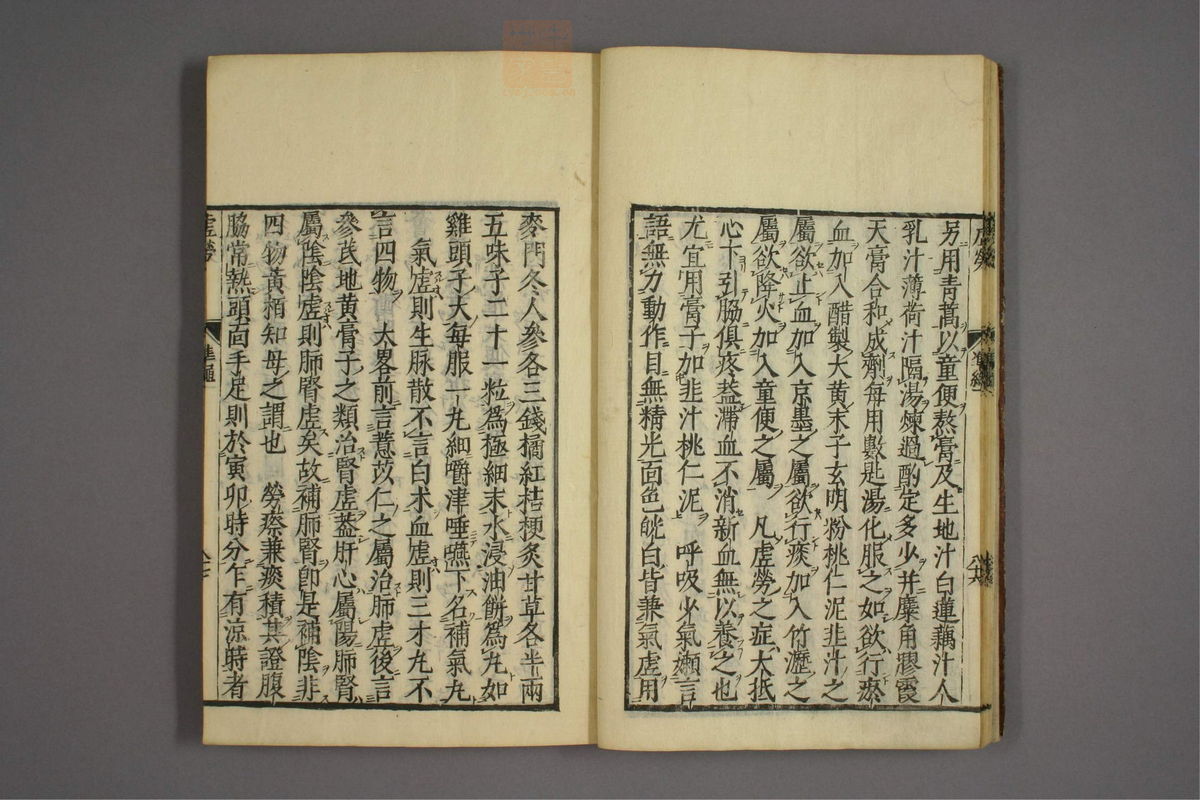 另用青蒿以童便熬膏及生地汁白蓮藕汁人
乳汁薄荷汁隔湯煉過酌定多少并麋角膠霞
天膏合和成劑每用數匙湯化服之如欲行瘀
血加入醋製大黄末子玄明粉桃仁泥韭汁之
屬欲止血加入京墨之屬欲行痰加入竹瀝之
屬欲降火加入童便之屬　凡虚勞之症大抵
心下引脇俱疼蓋滯血不消新血無以養之也
尤宜用膏子加韭汁桃仁泥　呼吸少氣懶言
語無力動作目無精光面色㿠白皆兼氣虚用
麥門冬人參各三錢橘紅桔梗炙甘草各半兩
五味子二十一粒爲極細末水浸油餅爲丸如
雞頭子大每服一丸細嚼津唾嚥下名補氣丸
氣虚則生脉散不言白术血虚則三才丸不
言四物　大畧前言薏苡仁之屬治肺虚後言
參芪地黄膏子之類治腎虚蓋肝心屬陽肺腎
屬陰陰虚則肺腎虚矣故補肺腎卽是補陰非
四物黄栢知母之謂也　勞瘵兼痰積其證腹
脇常熱頭面手足則於寅卯時分乍有凉時者
虚勞
準繩